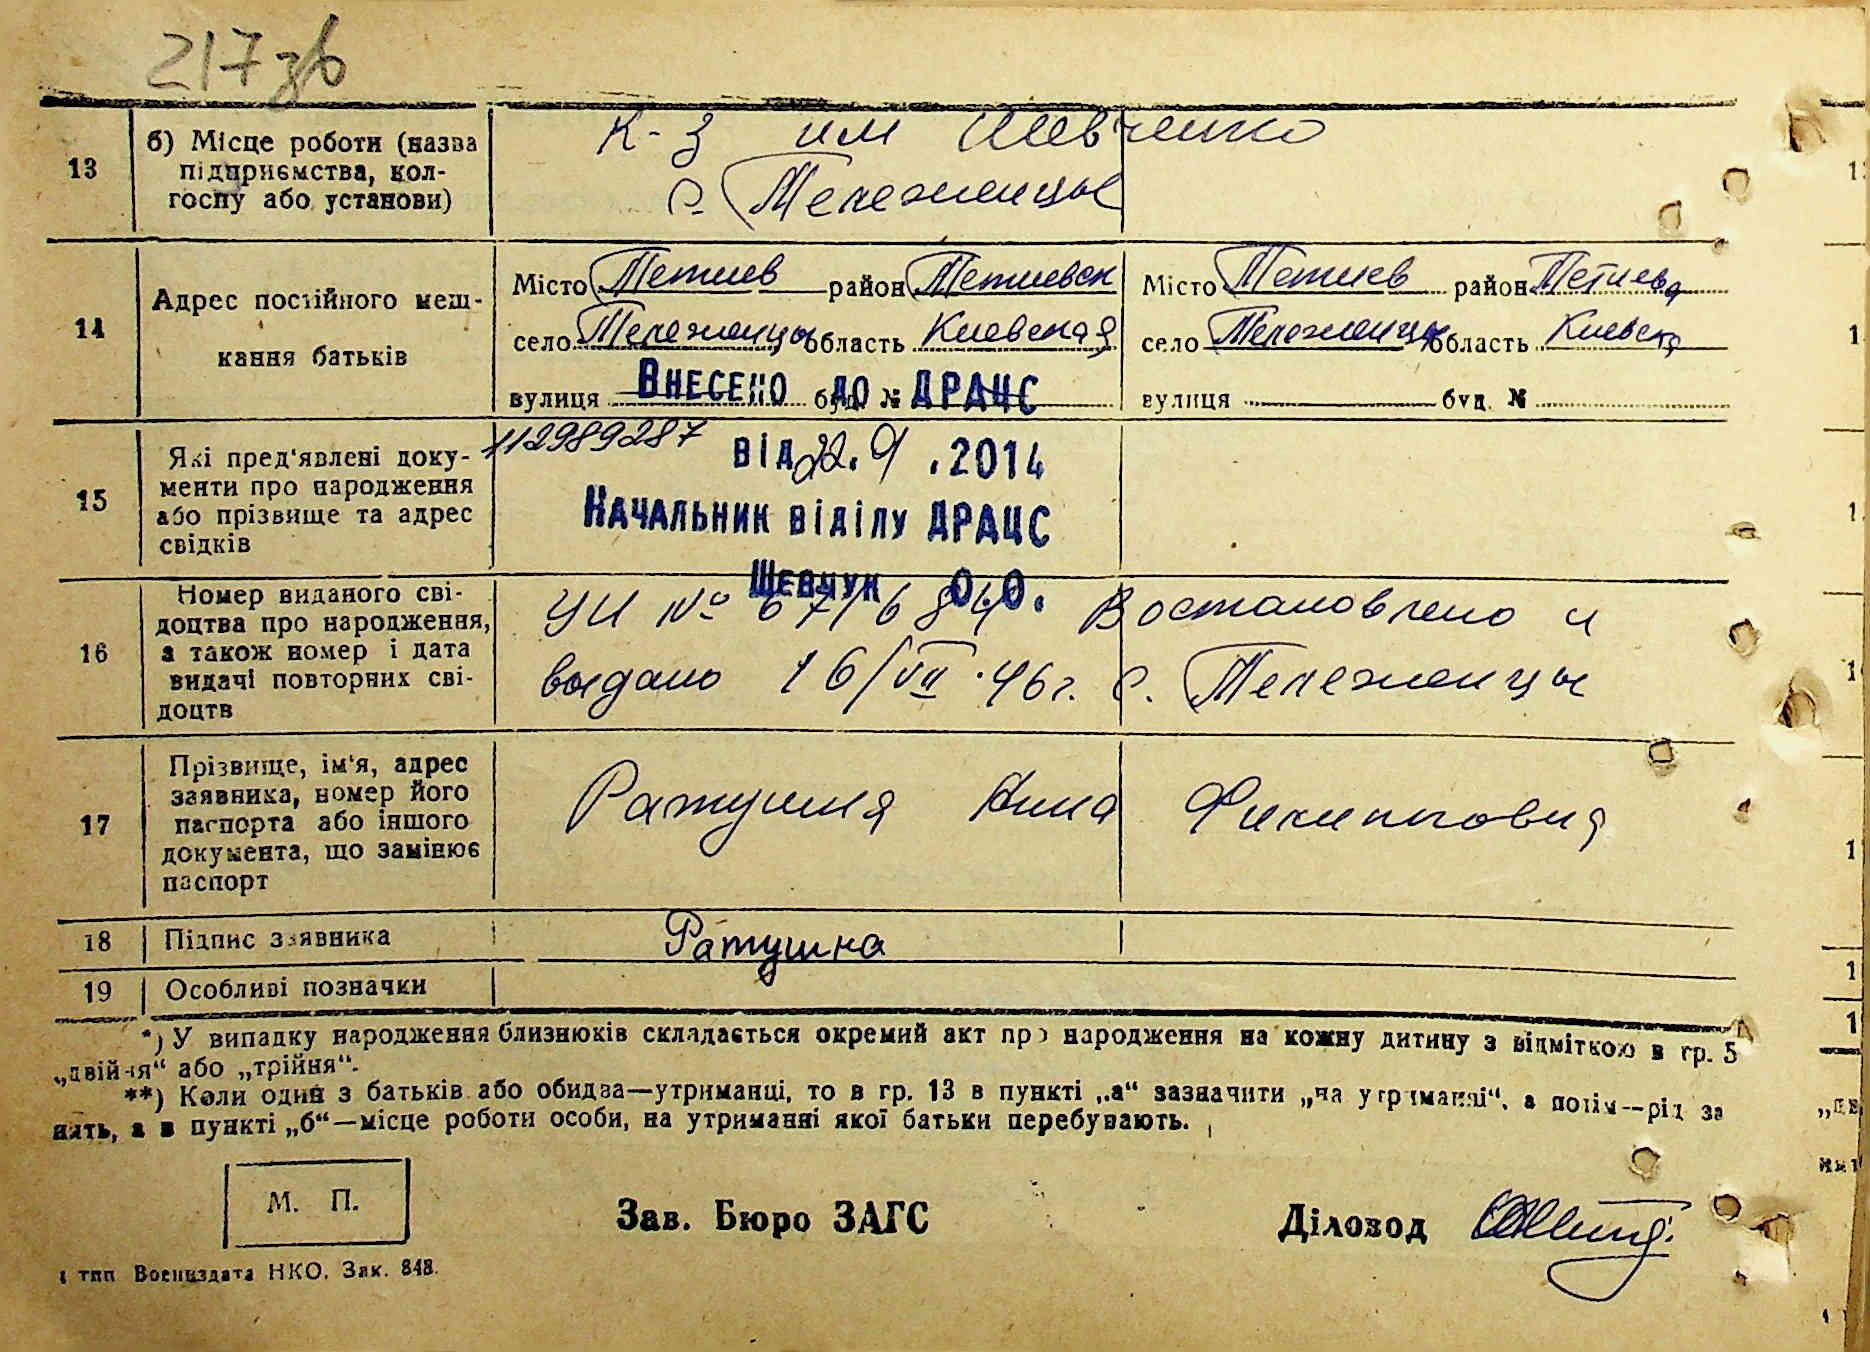 217 зв
13
б) Місце роботи (назва підприємства, колгоспу або установи)
К-з им Шевченко
с. Тележенцы
14
Адрес постійного мешкання батьків
Місто Тетиев район Тетиевск
село Теleженцы область Киевская
вулиця буд. №
Місто Тетиев район Тетиевс
село Тележенцы область Киевска
вулиця буд. №
Внесено до ДРАЦС
112989287
від 22. 9 .2014
Начальник відділу ДРАЦС
Шевчук О.О.
15
Які пред'явлені документи про народження або прізвище та адрес свідків
16
Номер виданого свідоцтва про народження, а також номер і дата видачі повторних свідоцтв
УИ № 671684 Востановлено и
выдано 16/VII-46г. с. Тележенцы
17
Прізвище, ім'я, адрес заявника, номер його паспорта або іншого документа, що замінює паспорт
Ратушня Нина Филипповна
18
Підпис заявника
Ратушна
19
Особливі позначки
*) У випадку народження близнюків складається окремий акт про народження на кожну дитину з відміткою в гр. 5
„двійня“ або „трійня“.
**) Коли один з батьків або обидва—утриманці, то в гр. 13 в пункті „а“ зазначити „на утриманні“, а потім—рід за
нять, а в пункті „б“—місце роботи особи, на утриманні якої батьки перебувають.
М. П.
Зав. Бюро ЗАГС
Діловод
тип Воениздата НКО. Зак. 848.